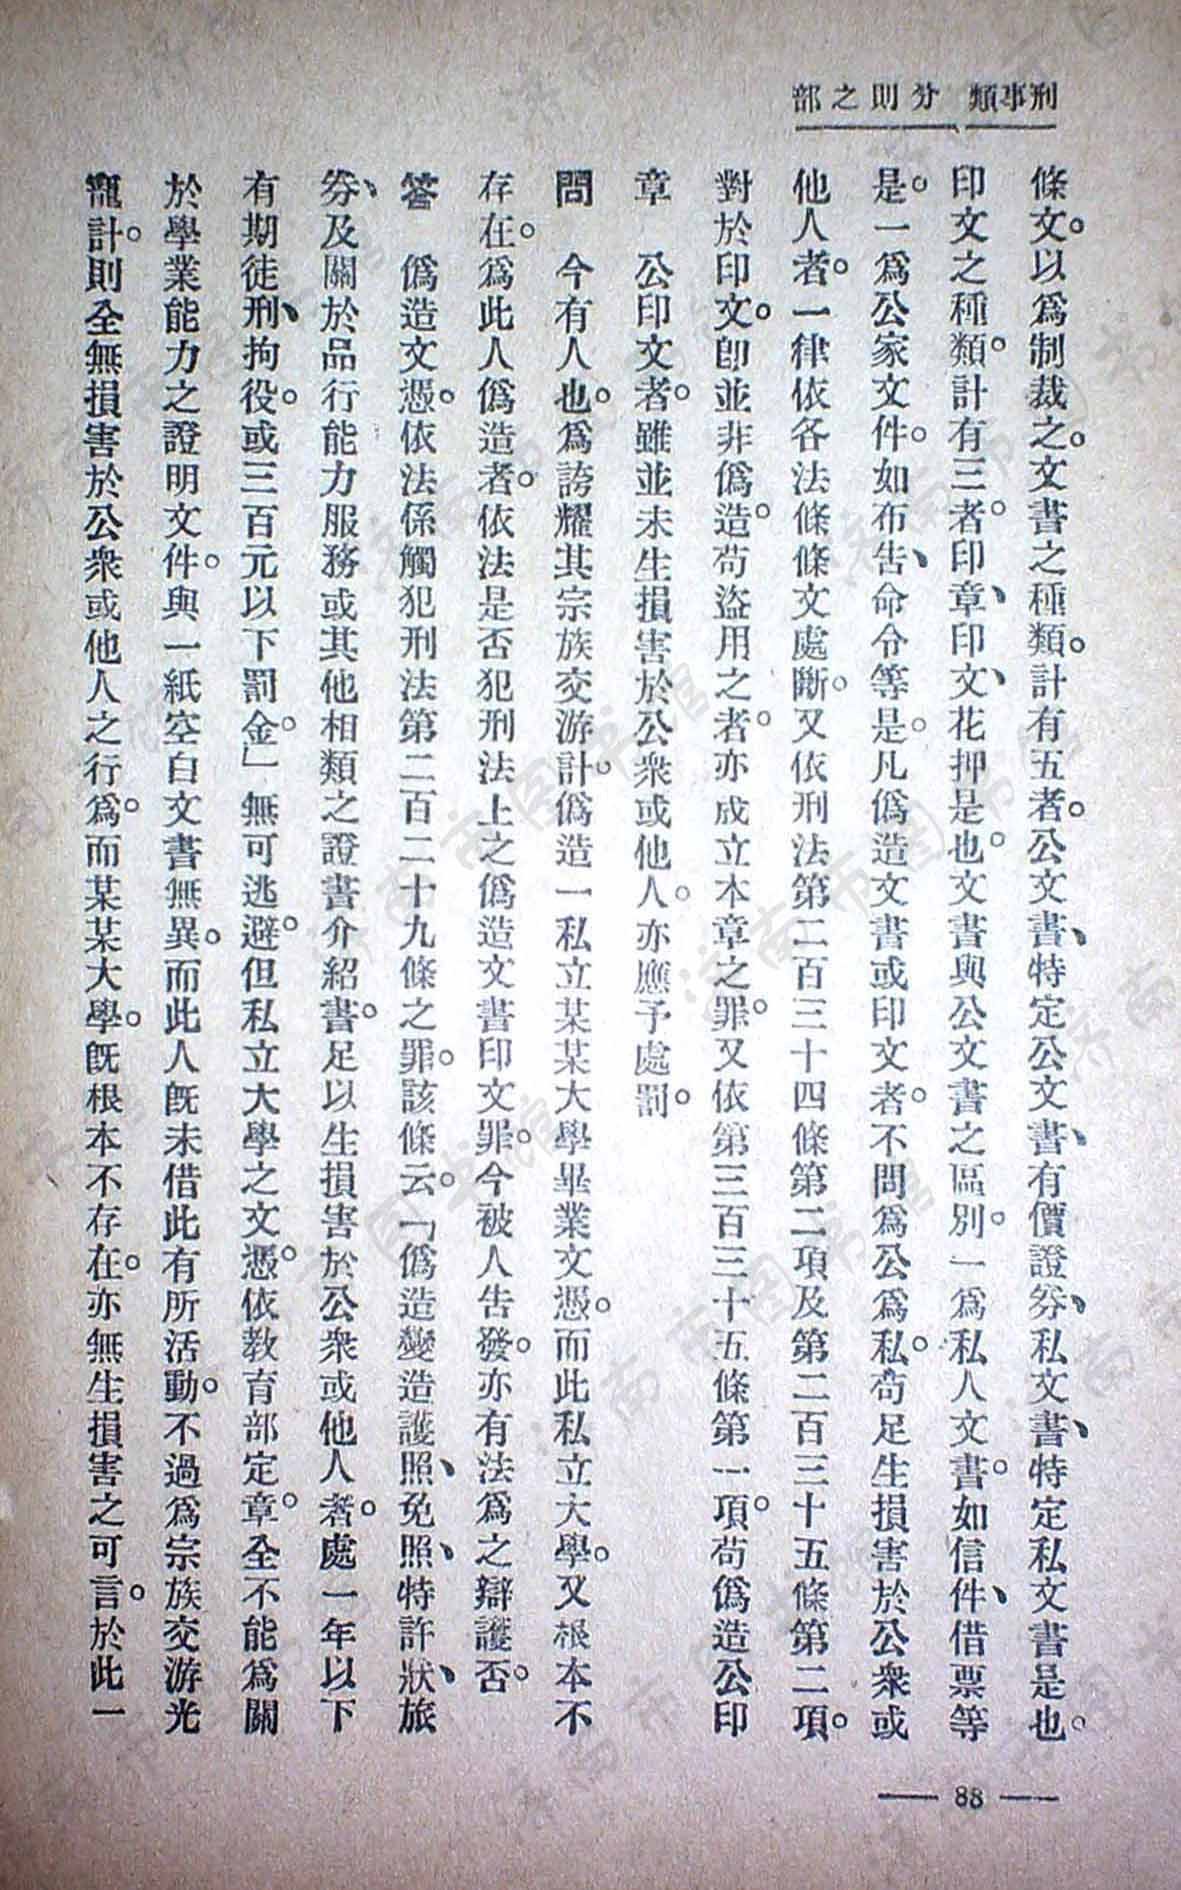 刑事類 分則之部
條文。以爲制裁之。文書之種類。計有五者。公文書、特定公文書、有價證券、私文書、特定私文書是也。
印文之種類。計有三者。印章、印文、花押是也。文書與公文書之區別。一爲私人文書。如信件、借票等
是。一爲公家文件。如布告、命令等是。凡僞造文書或印文者。不問爲公爲私。苟足生損害於公衆或
他人者。一律依各法條條文處斷。又依刑法第二百三十四條第二項及第二百三十五條第二項。
對於印文。卽並非僞造。苟盜用之者。亦成立本章之罪。又依第三百三十五條第一項。苟僞造公印
章 公印文者。雖並未生損害於公衆或他人。亦應予處罰。
問 今有人也。爲誇耀其宗族交游計。僞造一私立某某大學畢業文憑。而此私立大學。又根本不
存在。爲此人僞造者。依法是否犯刑法上之僞造文書印文罪。今被人告發。亦有法爲之辯護否。
答 僞造文憑。依法係觸犯刑法第二百二十九條之罪。該條云。「僞造變造護照、免照、特許狀、旅
券、及關於品行能力服務或其他相類之證書介紹書。足以生損害於公衆或他人者。處一年以下
有期徒刑、拘役。或三百元以下罰金。」無可逃避。但私立大學之文憑。依敎育部定章。全不能爲關
於學業能力之證明文件。與一紙空白文書無異。而此人旣未借此有所活動。不過爲宗族交游光
寵計。則全無損害於公衆或他人之行爲。而某某大學。旣根本不存在。亦無生損害之可言。於此一
— 88 —
济南市图书馆